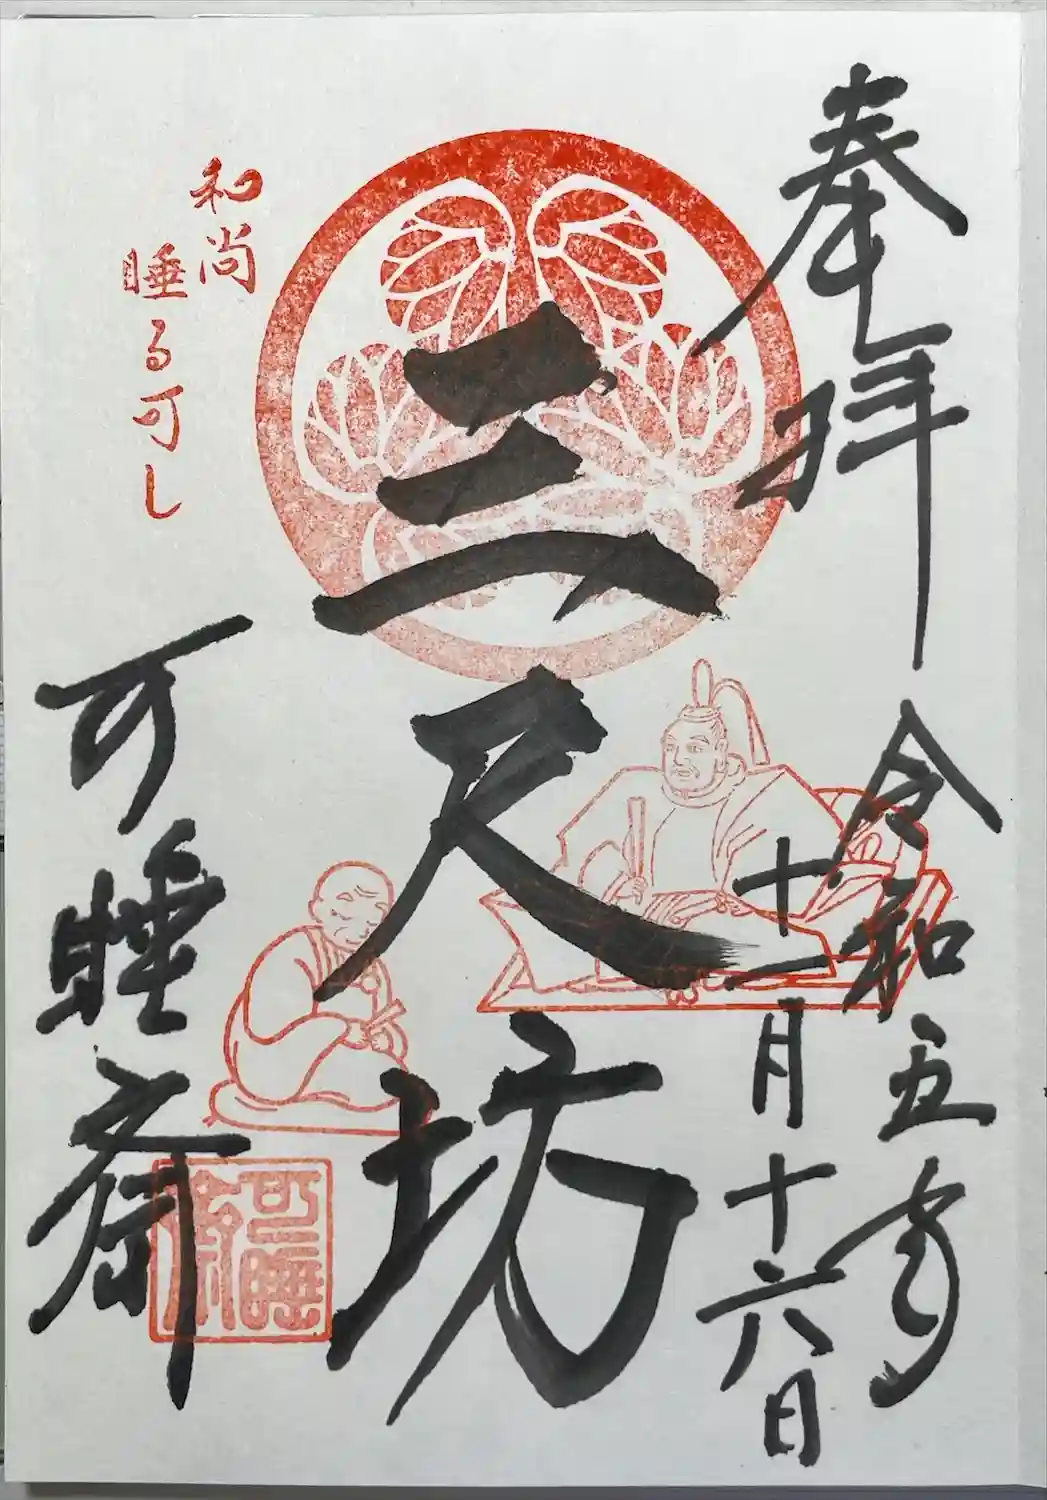 奉拝
令和五年
十一月十六日
三尺坊
和尚
睡る可し
可睡斎
可睡
斎